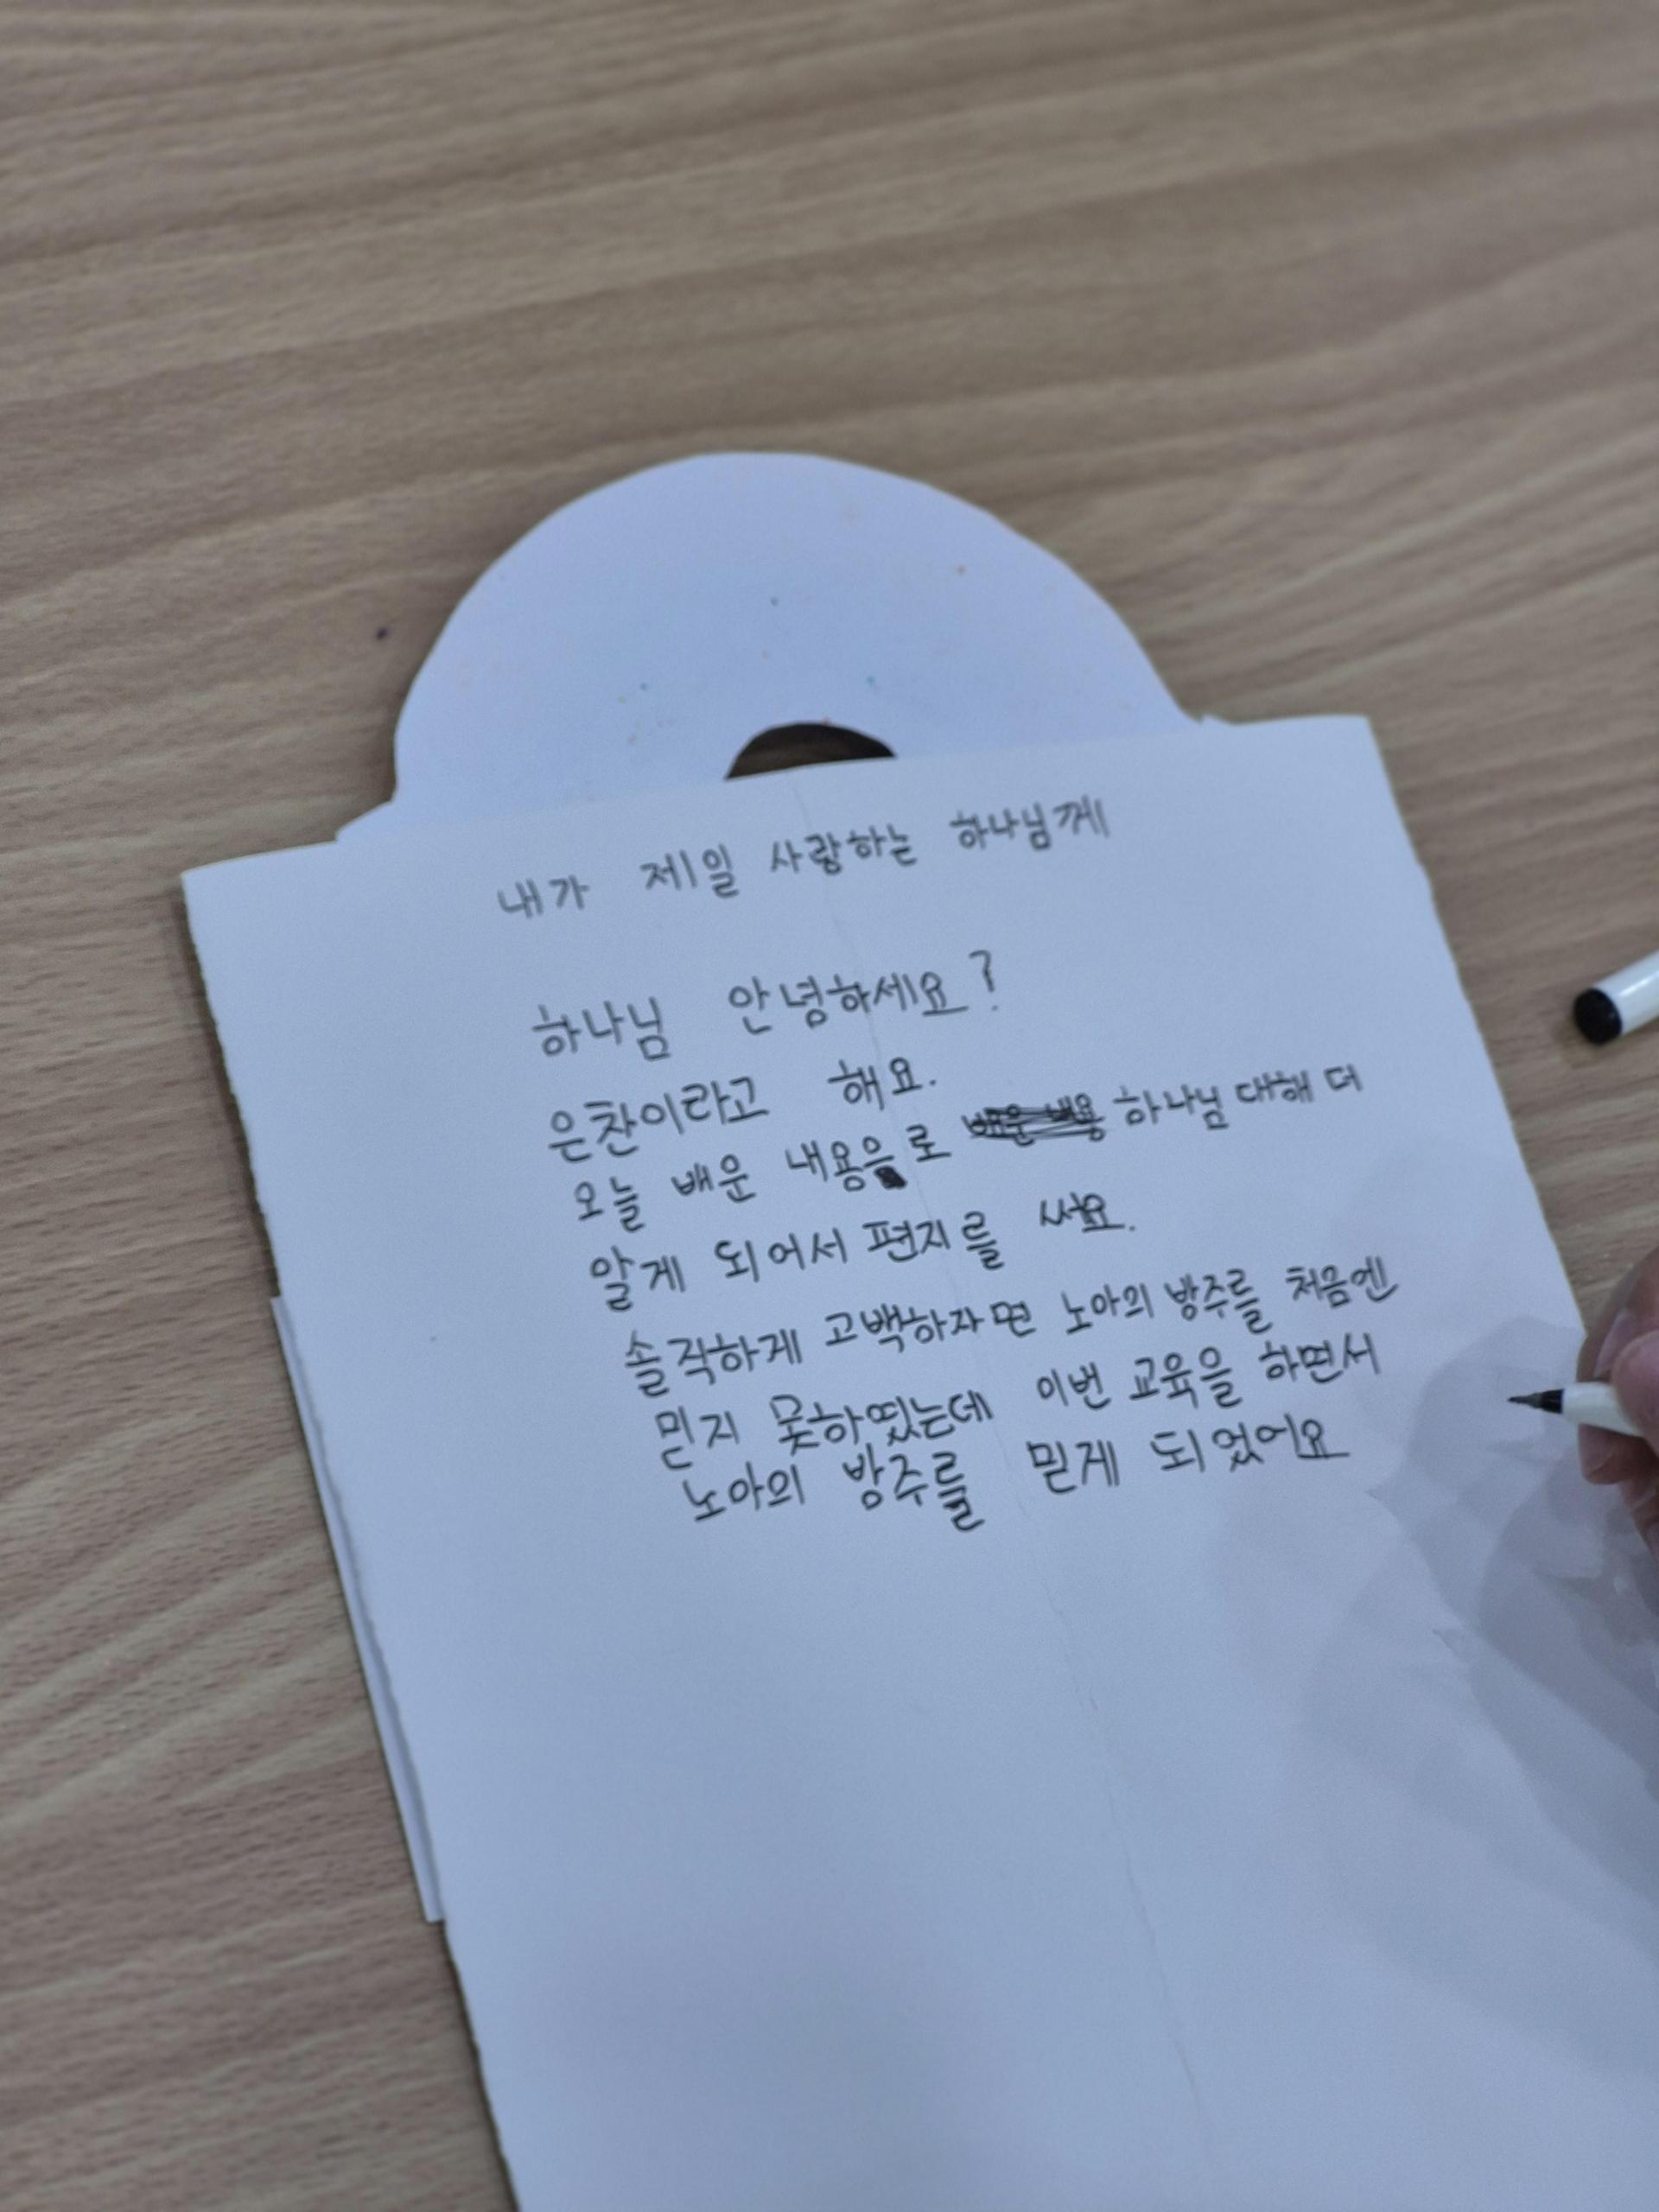 내가 제일 사랑하는 하나님께
하나님 안녕하세요?
은찬이라고 해요.
오늘 배운 내용으로 하나님 대해 더
알게 되어서 편지를 써요.
솔직하게 고백하자면 노아의 방주를 처음엔
믿지 못하였는데 이번 교육을 하면서
노아의 방주를 믿게 되었어요